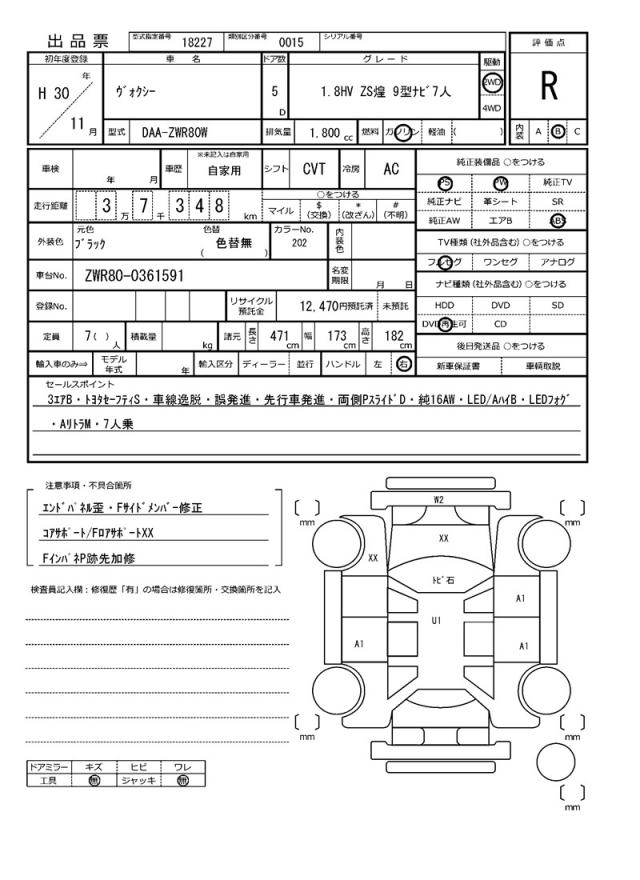 出品票 型式指定番号 18227 類別区分番号 0015 シリアル番号
評価点
R
内装 A B C
初年度登録 車名 ドア数 グレード 駆動
H 30 年 11 月
ヴォクシー
5 D
1.8HV ZS煌 9型ナビ7人
2WD
4WD
型式 DAA-ZWR80W 排気量 1.800 cc 燃料 ガソリン 軽油 ( )
車検 年 月 車歴 ※未記入は自家用 自家用 シフト CVT 冷房 AC
走行距離 3 万 7 千 3 4 8 km
○をつける
マイル $ (交換) * (改ざん) # (不明)
外装色 元色 ブラック 色替 ( 色替無 ) カラーNo. 202 内装色
車台No. ZWR80-0361591 名変期限 月 日
登録No. リサイクル預託金 12.470円預託済 未預託
定員 7( ) 人 積載量 kg 諸元 長さ 471 cm 幅 173 cm 高さ 182 cm
輸入車のみ⇒ モデル年式 年 輸入区分 ディーラー 並行 ハンドル 左 右
純正装備品 ○をつける
PS PW 純正TV
純正ナビ 革シート SR
純正AW エアB ABS
TV種類 (社外品含む) ○をつける
フルセグ ワンセグ アナログ
ナビ種類 (社外品含む) ○をつける
HDD DVD SD
DVD再生可 CD
後日発送品 ○をつける
新車保証書 車輌取説
セールスポイント
3エアB・トヨタセーフティS・車線逸脱・誤発進・先行車発進・両側PスライドD・純16AW・LED/AハイB・LEDフォグ
・AリトラM・7人乗
注意事項・不具合箇所
エンドパネル歪・Fサイドメンバー修正
コアサポート/FロアサポートXX
FインパネP跡先加修
検査員記入欄：修復歴「有」の場合は修復箇所・交換箇所を記入
ドアミラー キズ ヒビ ワレ
工具 無 ジャッキ 無
W2
mm
mm
XX
XX
トビ石
A1
U1
A1
A1
mm
mm
mm